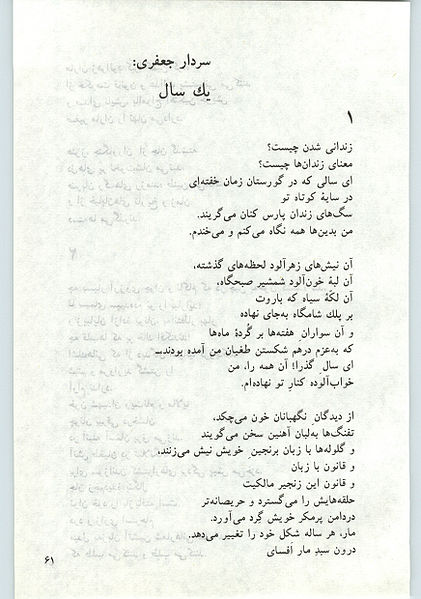 سردار جعفری:
یك سال
۱
زندانی شدن چیست؟
معنای زندان‌ها چیست؟
ای سالی که در گورستان زمان خفته‌ای
در سایهٔ کوتاه تو
سگ‌های زندان پارس کنان می‌گریند.
من بدین‌ها همه نگاه می‌کنم و می‌خندم.
آن نیش‌های زهرآلود لحظه‌های گذشته،
آن لبهٔ خون‌آلود شمشیر صبحگاه،
آن لکّهٔ سیاه که باروت
بر پلك شامگاه به‌جای نهاده
و آن سواران ِ هفته‌ها بر گُردهٔ ماه‌ها
که به‌عزم درهم شکستن طغیان من آمده بودند_
ای سال ِ گذرا! آن همه را، من
خواب‌آلوده کنار ِ تو نهاده‌ام.
از دیدگان ِ نگهبانان خون می‌چکد،
تفنگ‌ها به‌لبان آهنین سخن می‌گویند
و گلوله‌ها با زبان برنجین ِ خویش نیش می‌زنند،
و قانون با زبان
و قانون این زنجیر مالکیت
حلقه‌هایش را می‌گسترد و حریصانه‌تر
دردامن پرمکر خویش گِرد می‌آورد.
مار، هر ساله شکل خود را تغییر می‌دهد.
درون سبدِ مار اَفسای
۶۱